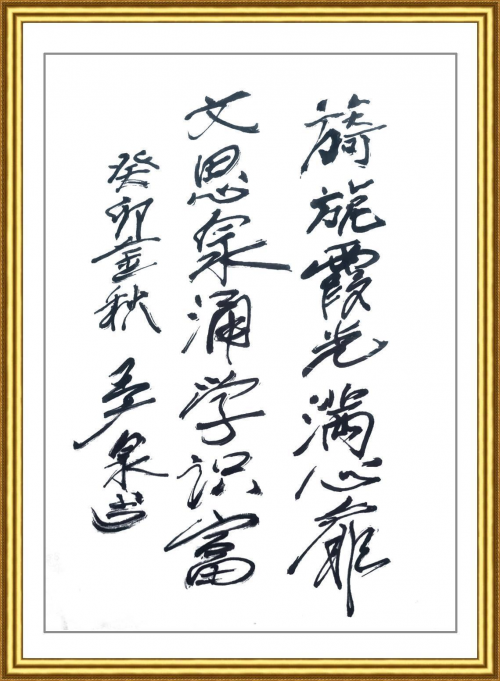 旖旎霞光满心扉
文思泉涌学识富
癸卯金秋
泉